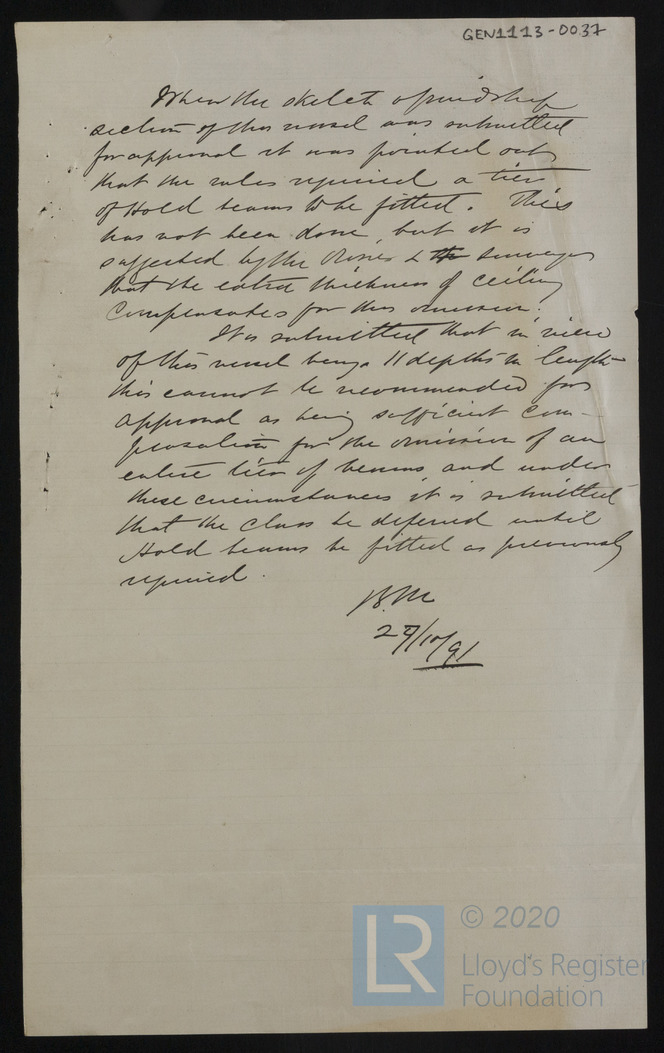 GEN1113-0037
When the sketch of midship
section of this vessel was submitted
for approval it was pointed out
that the rules required a tier
of Hold beams to be fitted. This
has not been done, but it is
suggested by the Owners & the Surveyor
that the extra thickness of ceiling
compensates for this omission.
It is submitted that in view
of this vessel being 11 depths in length
this cannot be recommended for
approval as being sufficient com-
pensation for the omission of an
entire tier of beams and under
these circumstances it is submitted
that the Class be deferred until
Hold beams be fitted as previously
required.
B.M
29/10/91
LR
© 2020
Lloyd's Register
Foundation